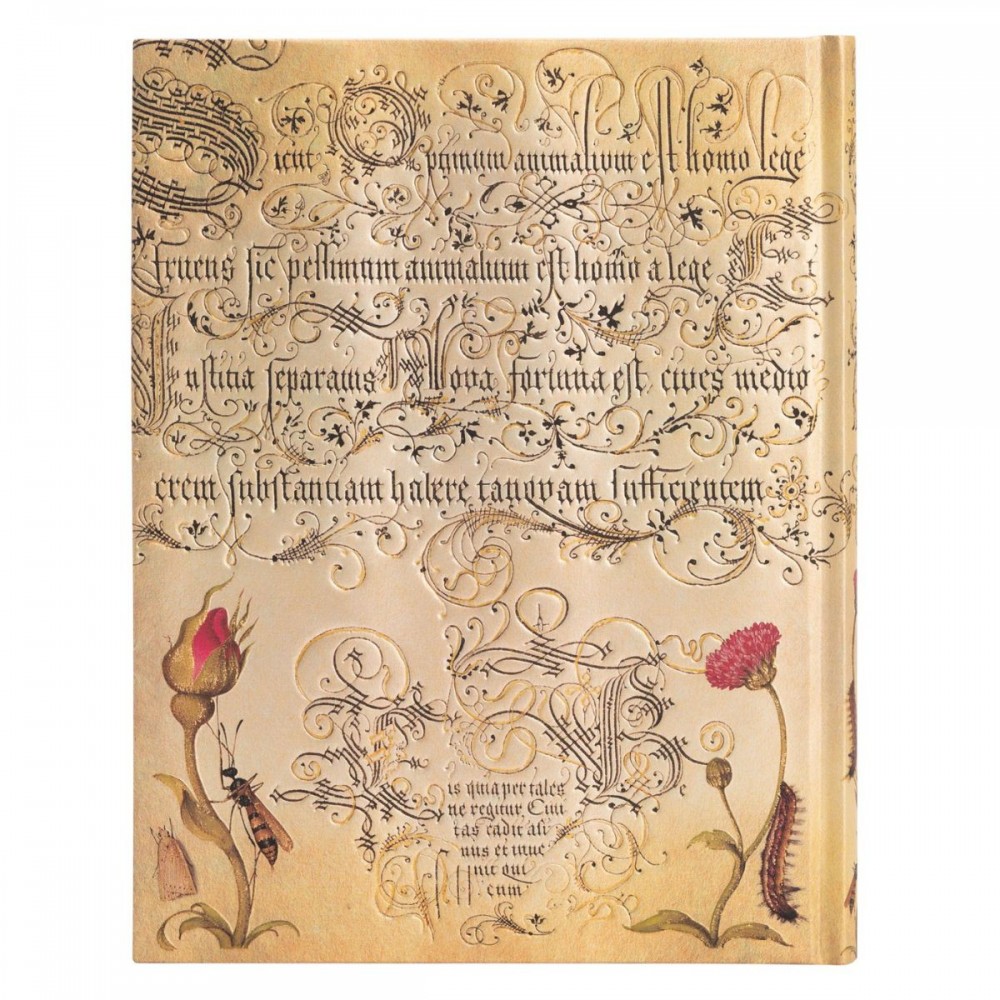 Sicut Optimum animalium est homo lege
fruens sic pessimum animalium est homo a lege E
Iustitia separatus Nova fortuna est, cives medio
crem substantiam habere tanquam sufficientem
is quia per tales
ne regitur Civi
tas cadit asi
nus et inve
nit qui
eum